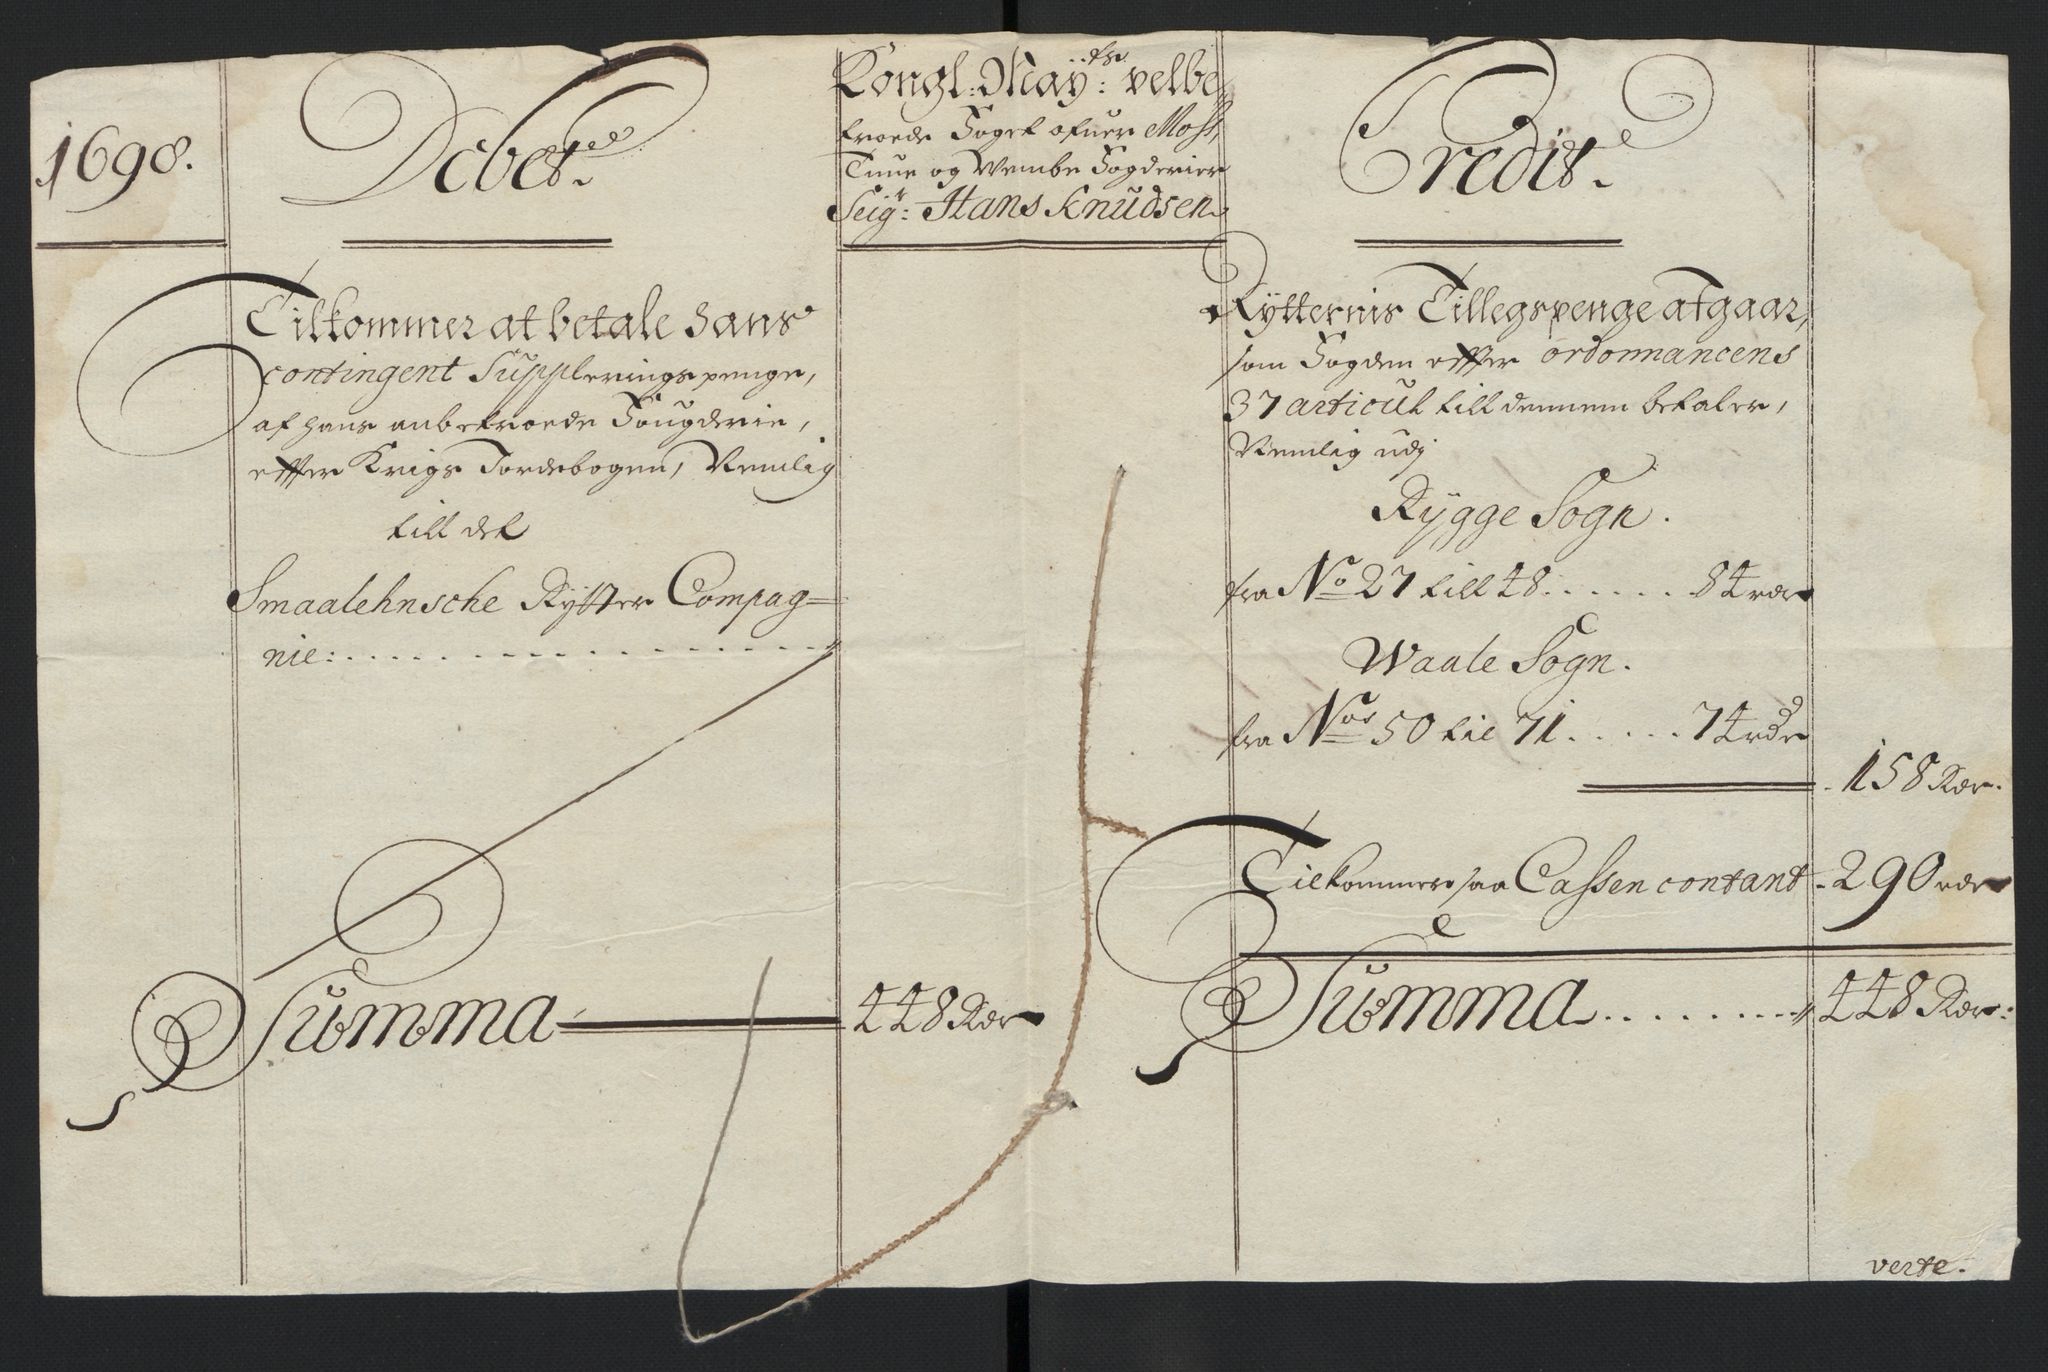 1698.
Debet
Kongl: May:ts velbe
troede Foget ofuer Moss,
Tune og Wembe Fogderier
Seigr: Hans Knudsen
Credit
Tilkommer at betale hans
contingent Suppleringspenge,
af hans anbetroede Fougderie,
effter Krigs Jordebogen, Nemlig
till det
Smaalehnsche Rytter Compag=
nie:
Summa 448 Rdr
Rytternis Tillegspenge afgaar,
som Fogden effter ordonnancens
37 articul till dennem betaler,
Nemlig udj
Rygge Sogn.
fra No 27 till 48 . . . . . . 84 rdr
Waale Sogn.
fra Nos 50 til 71 . . . . . 74 rdr
158 Rdr.
Tilkommer saa Cassen contant 290 rdr
Summa . . . . . . . . 448 Rdr:
verte.